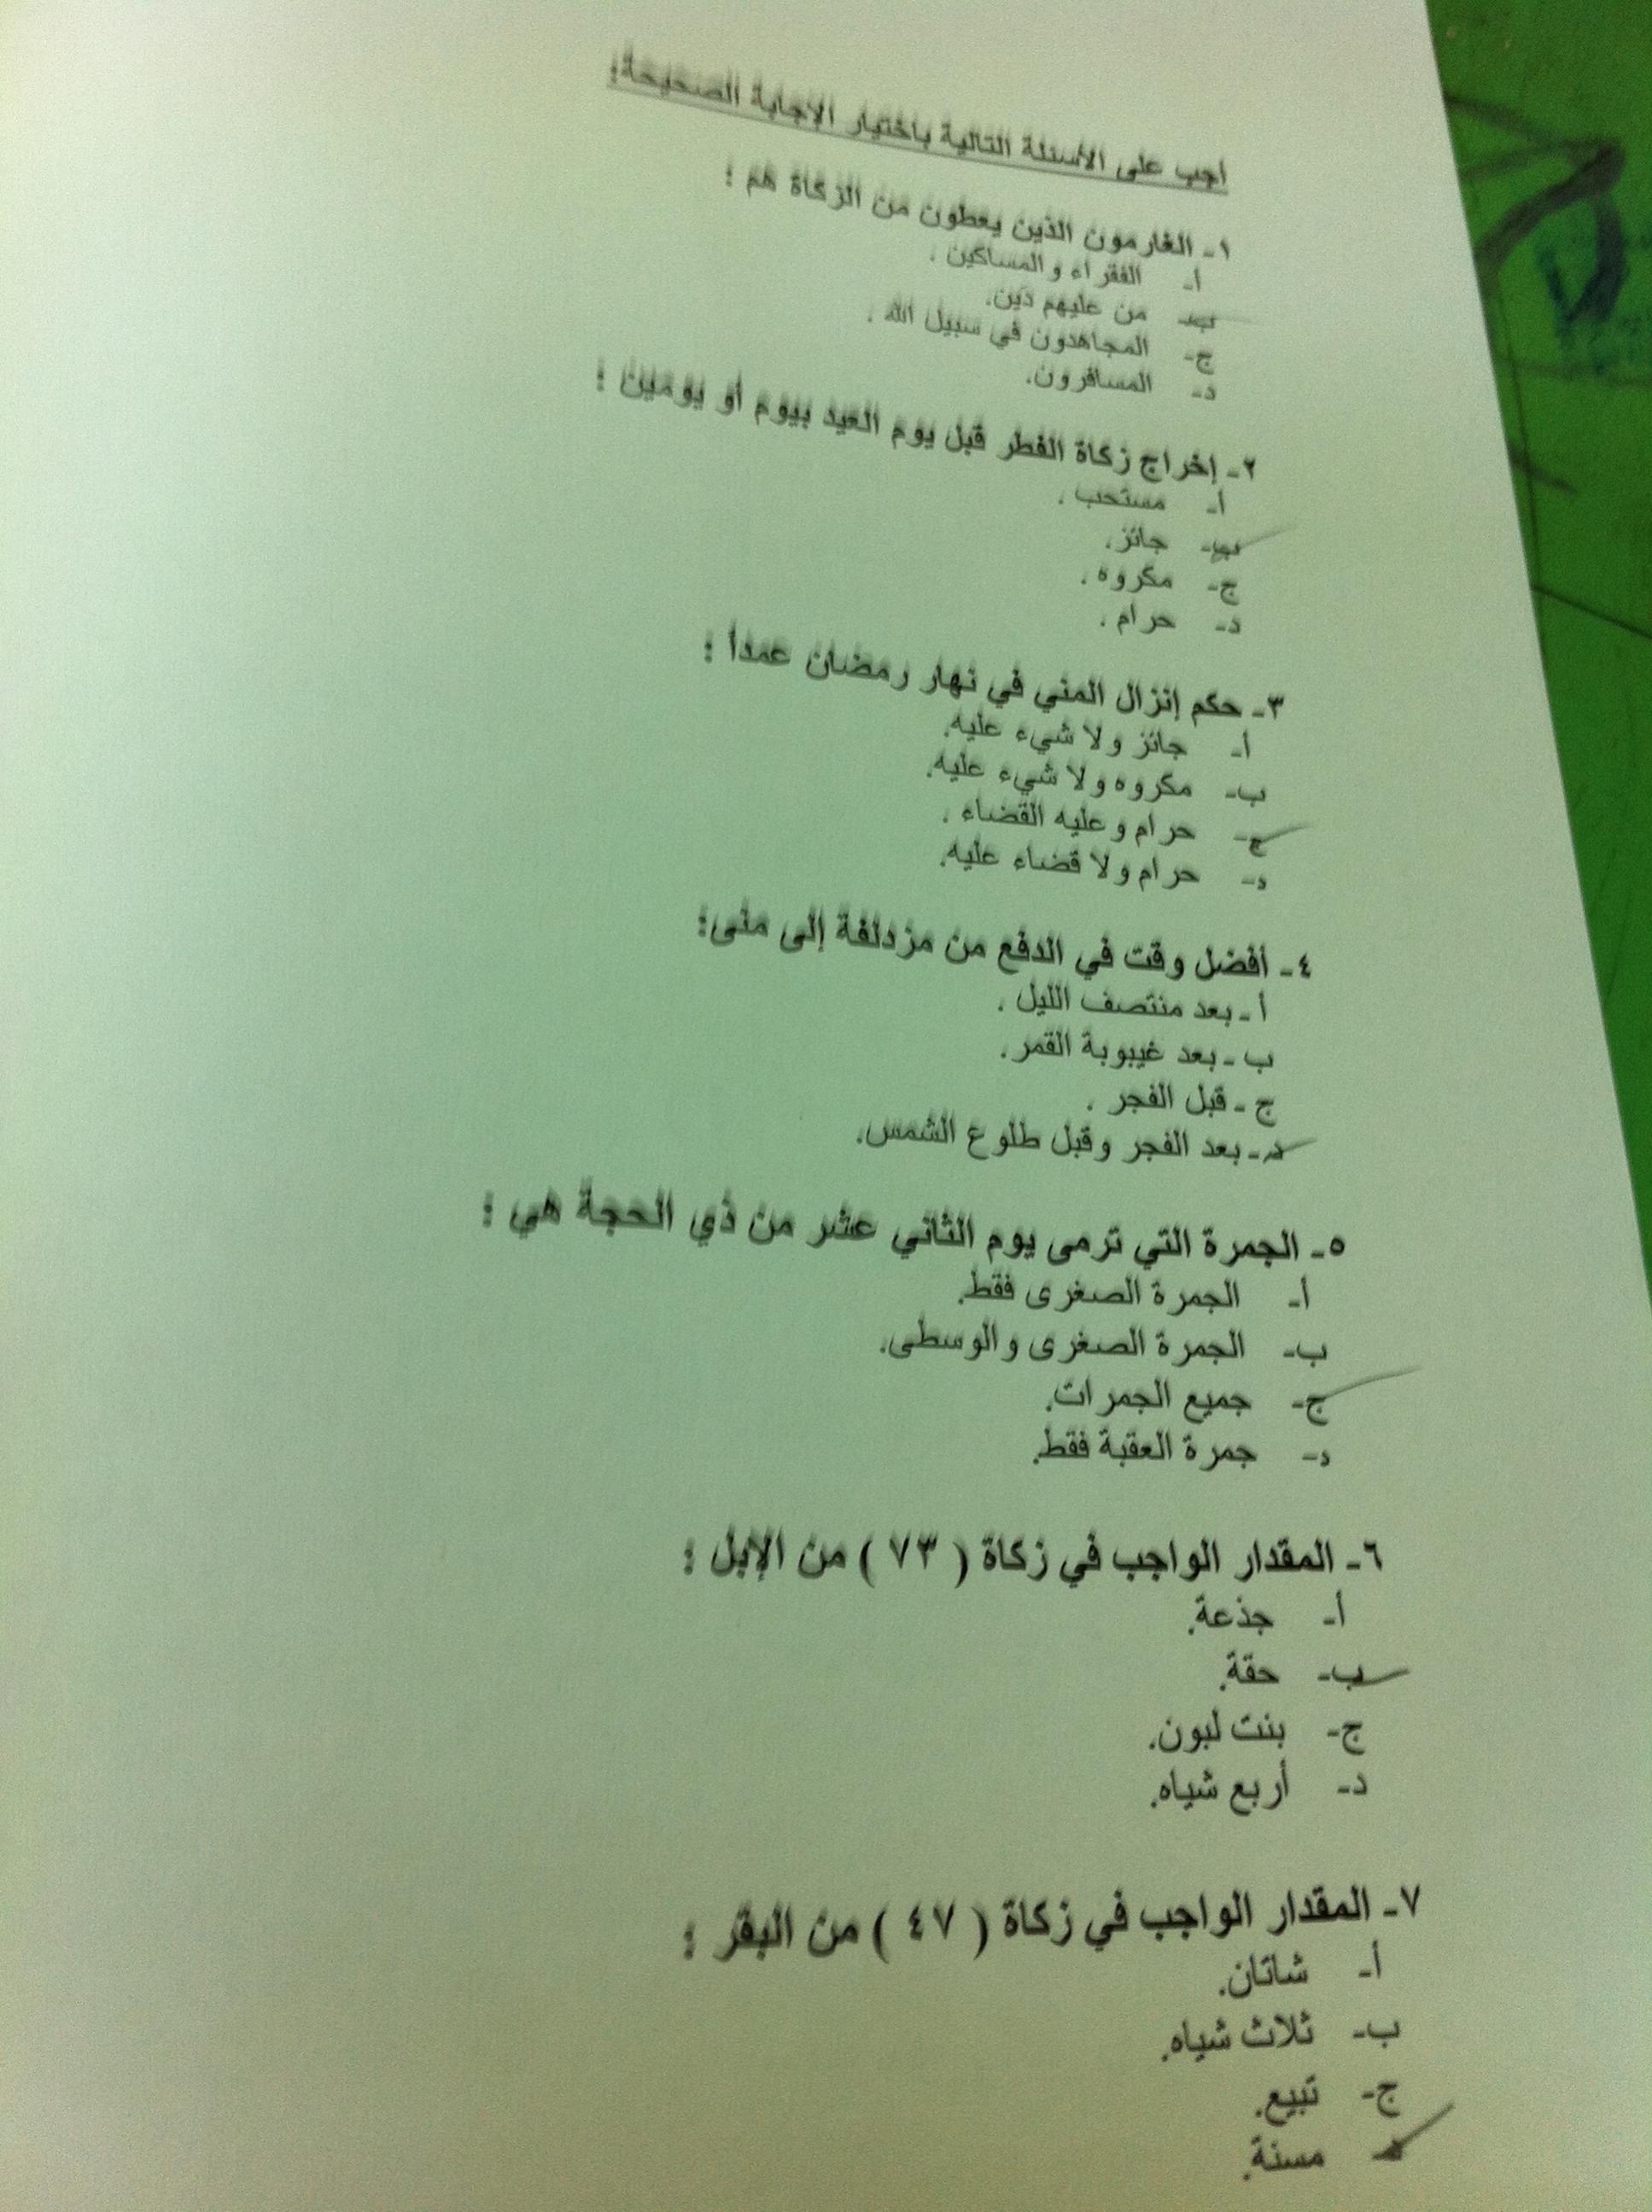 أجب على الأسئلة التالية باختيار الإجابة الصحيحة:
١- الغارمون الذين يعطون من الزكاة هم :
أ- الفقراء والمساكين .
ب- من عليهم دَين.
ج- المجاهدون في سبيل الله .
د- المسافرون.
٢- إخراج زكاة الفطر قبل يوم العيد بيوم أو يومين :
أ- مستحب .
ب- جائز.
ج- مكروه .
د- حرام .
٣- حكم إنزال المني في نهار رمضان عمداً :
أ- جائز ولا شيء عليه.
ب- مكروه ولا شيء عليه.
ج- حرام وعليه القضاء .
د- حرام ولا قضاء عليه.
٤- أفضل وقت في الدفع من مزدلفة إلى منى:
أ- بعد منتصف الليل .
ب- بعد غيبوبة القمر.
ج- قبل الفجر .
د- بعد الفجر وقبل طلوع الشمس.
٥- الجمرة التي ترمى يوم الثاني عشر من ذي الحجة هي :
أ- الجمرة الصغرى فقط.
ب- الجمرة الصغرى والوسطى.
ج- جميع الجمرات.
د- جمرة العقبة فقط.
٦- المقدار الواجب في زكاة ( ٧٣ ) من الإبل :
أ- جذعة.
ب- حقة.
ج- بنت لبون.
د- أربع شياه.
٧- المقدار الواجب في زكاة ( ٤٧ ) من البقر :
أ- شاتان.
ب- ثلاث شياه.
ج- تبيع.
د- مسنة.